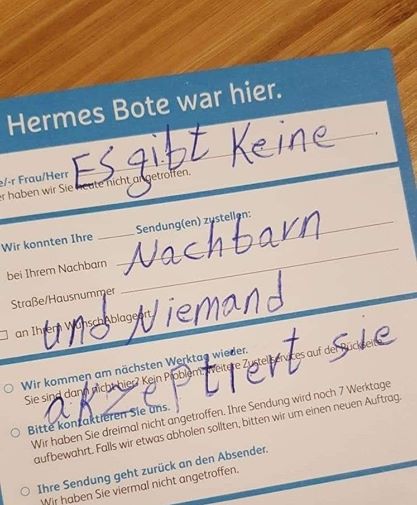 Hermes Bote war hier.
e/-r Frau/Herr Es gibt Keine
er haben wir Sie heute nicht angetroffen.
Wir konnten Ihre Sendung(en) zustellen:
bei Ihrem Nachbarn Nachbarn
Straße/Hausnummer
und Niemand
an Ihrem Wunschablageort
Wir kommen am nächsten Werktag wieder.
Sie sind dann nicht hier? Kein Problem! Weitere Zustellservices auf der Rückseite
akzeptiert sie
Bitte kontaktieren Sie uns.
Wir haben Sie dreimal nicht angetroffen. Ihre Sendung wird noch 7 Werktage
aufbewahrt. Falls wir etwas abholen sollten, bitten wir um einen neuen Auftrag.
Ihre Sendung geht zurück an den Absender.
Wir haben Sie viermal nicht angetroffen.